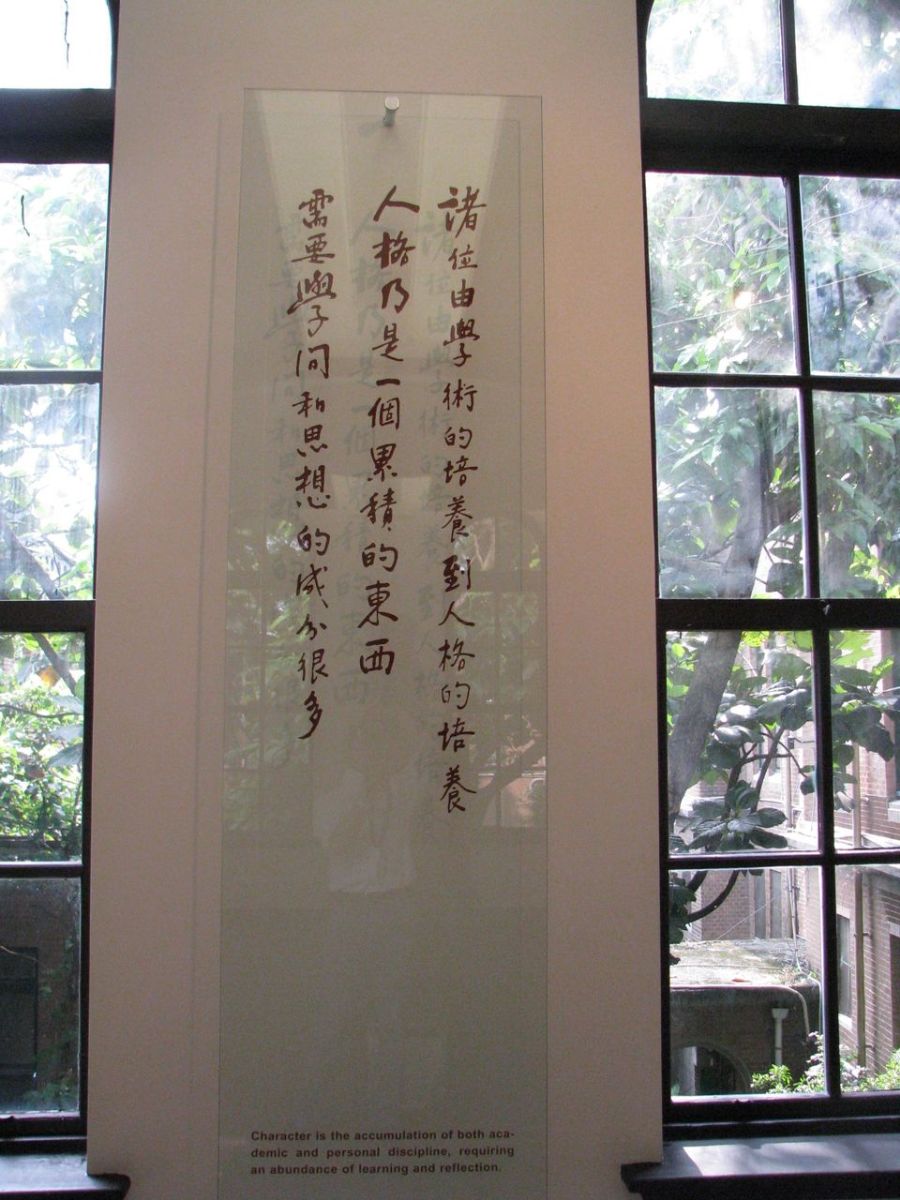 諸位由學術的培養到人格的培養
人格乃是一個累積的東西
需要學問和思想的成分很多
Character is the accumulation of both aca-
demic and personal discipline, requiring
an abundance of learning and reflection.